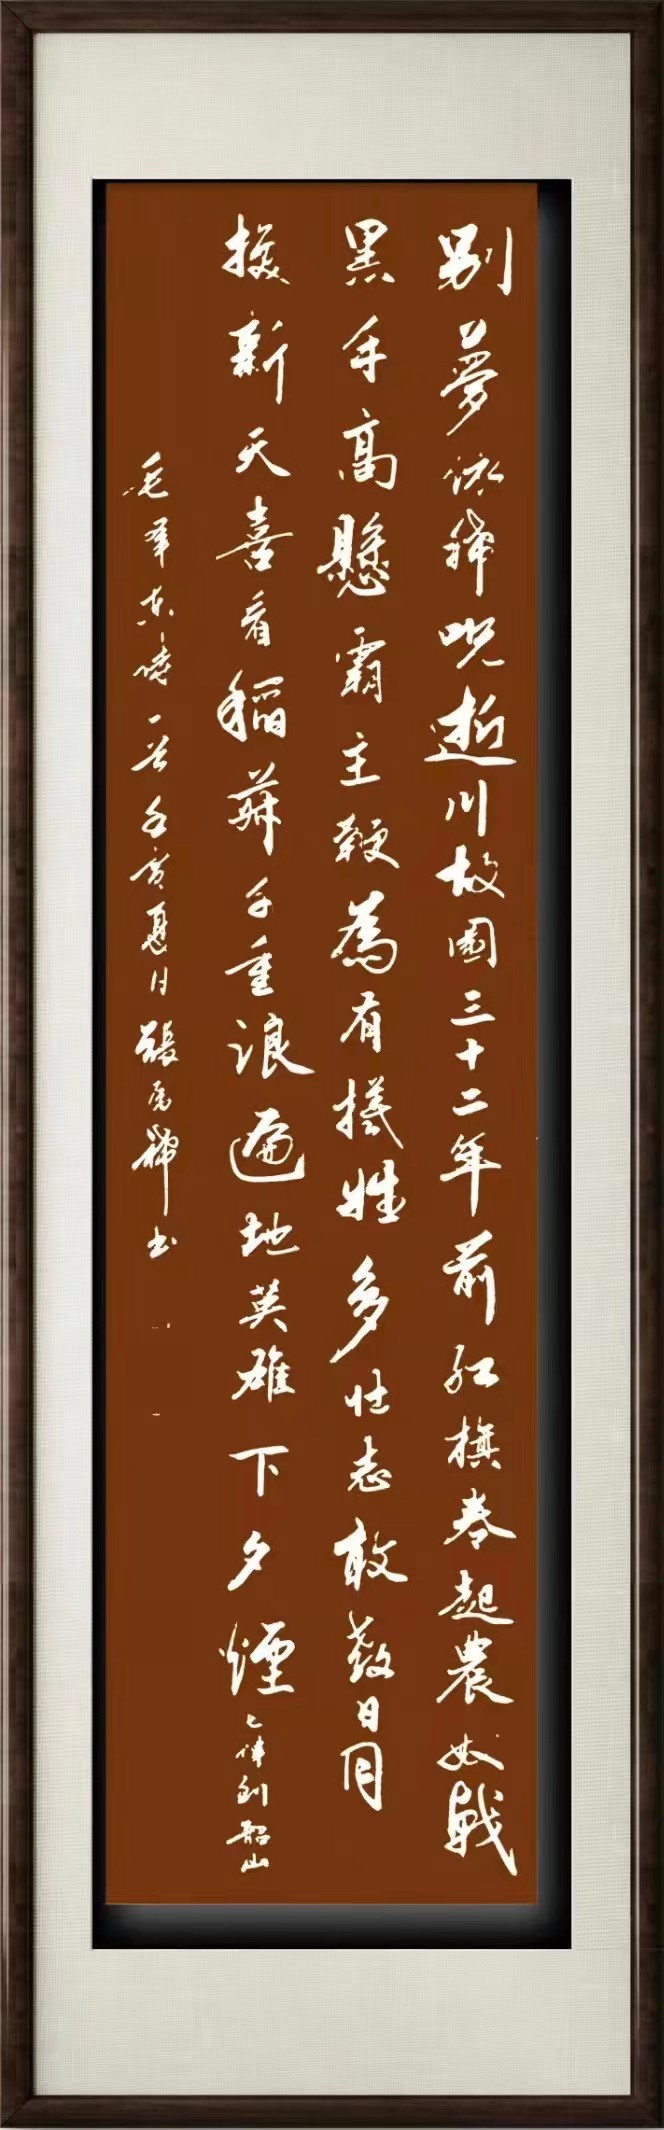 别夢依稀呪逝川故園三十二年前红旗卷起農奴戟
黑手高懸霸主鞭為有犧牲多壮志敢教日月
換新天喜看稻菽千重浪遍地英雄下夕煙七律到韶山
毛泽东诗一首壬寅夏日張书